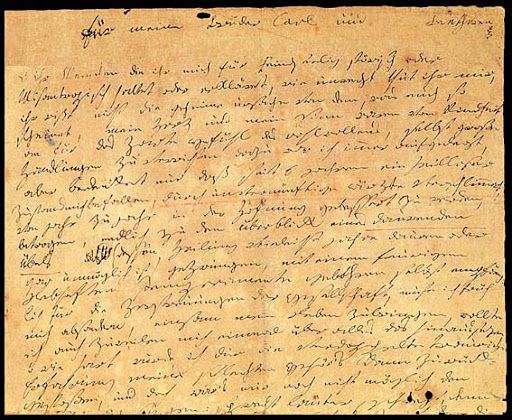 für meine Brüder Carl und Beethoven
o ihr Menschen die ihr mich für feindseelig störisch oder
Misantropisch haltet oder erkläret, wie unrecht thut ihr mir,
ihr wißt nicht die geheime urßache von dem, was euch so
scheinet, mein Herz und mein Sinn waren von Kindheit
an für das Zarte gefühl des wohlwollens, selbst große
Handlungen zu verrichten dazu war ich immer aufgelegt,
aber bedenket nur daß seit 6 jahren ein heilloser
Zustand mich befallen, durch unvernünftige ärzte verschlimmert,
von jahr zu jahr in der Hofnung gebessert zu werden,
betrogen, endlich zu dem überblick eines daurenden
Übels dessen Heilung vieleicht jahre dauren oder
gar unmöglich ist, gezwungen, mit einem feurigen
Lebhaften Temperamente gebohren selbst empfäng-
lich für die Zerstreuungen der gesellschaft, muste ich früh
mich absondern, einsam mein Leben zubringen, wollte
ich auch zuweilen mich einmal über alles das hinaussezen,
o wie hart wurde ich dur die verdoppelte traurige
Erfahrung meines schlechten Gehör's dann zurück-
gestoßen, und doch war's mir noch nicht möglich den
sagen: sprecht lauter, denn